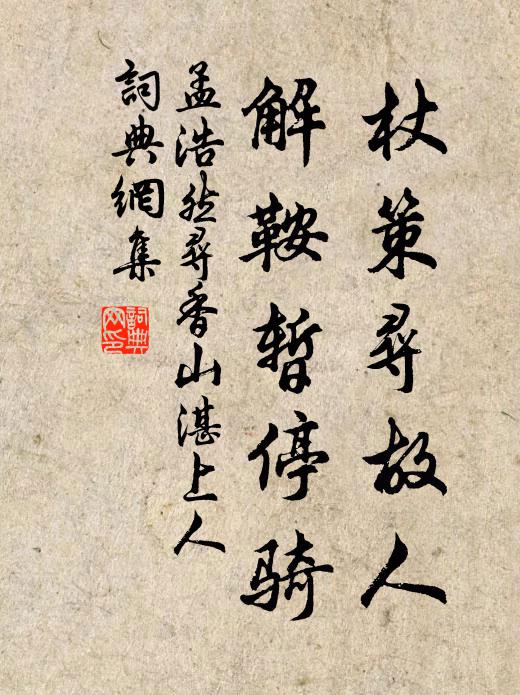 杖策尋故人
解鞍暫停骑
孟浩然尋香山湛上人
詞典網集
詞典
网印